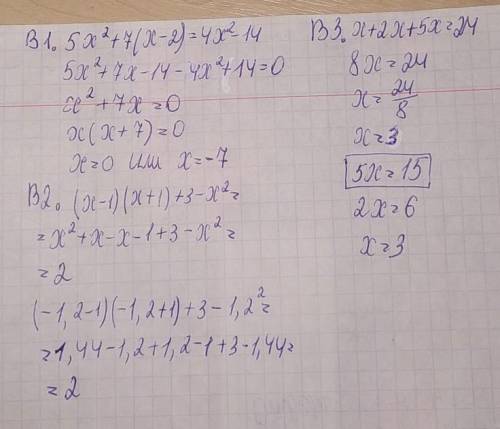 В1. 5x²+7(x-2)=4x²-14
5x²+7x-14-4x²+14=0
x²+7x=0
x(x+7)=0
x=0 или x=-7
В2. (x-1)(x+1)+3-x²=
=x²+x-x-1+3-x²=
=2
(-1,2-1)(-1,2+1)+3-1,2²=
=1,44-1,2+1,2-1+3-1,44=
=2
В3. x+2x+5x=24
8x=24
x=24/8
x=3
5x=15
2x=6
x=3